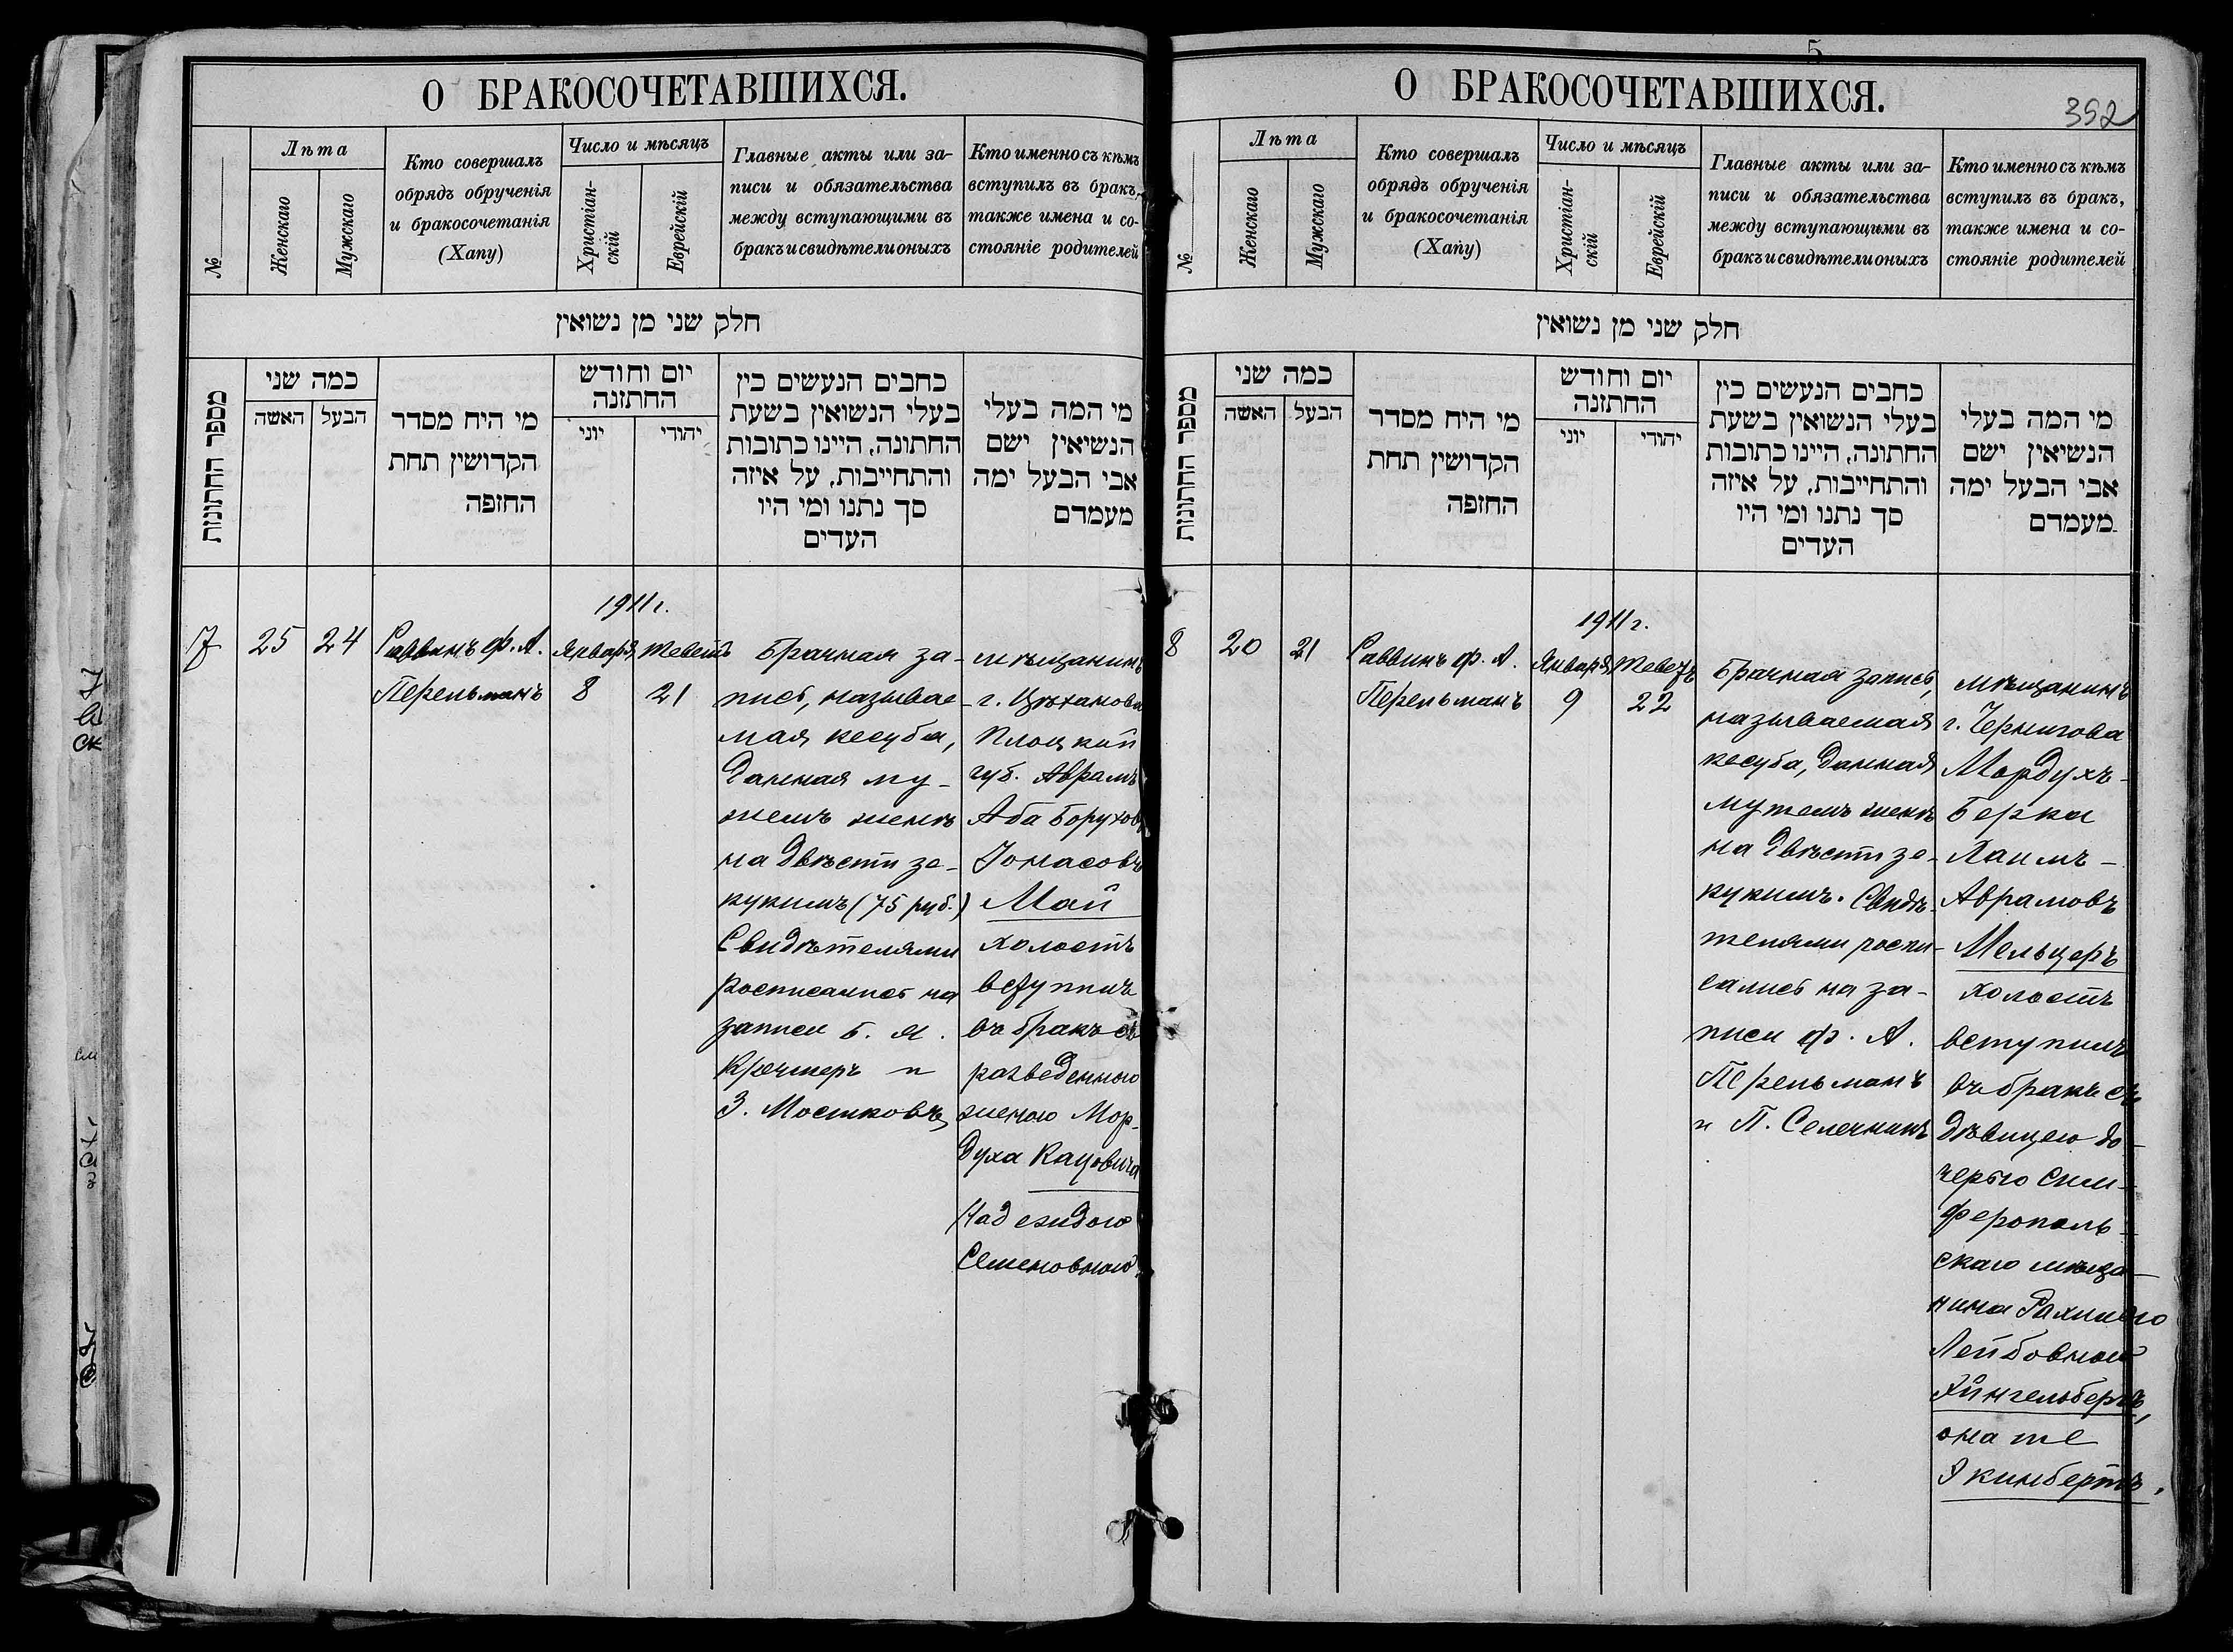 О БРАКОСОЧЕТАВШИХСЯ.
№
Лѣта
Женскаго
Мужскаго
Кто совершалъ
обрядъ обрученія
и бракосочетанія
(Хапу)
Число и мѣсяцъ
Христіан-
скій
Еврейскій
Главные акты или за-
писи и обязательства
между вступающими въ
бракъ и свидѣтели оныхъ
Кто именно съ кѣмъ
вступилъ въ бракъ,
также имена и со-
стояніе родителей
חלק שני מן נשואין
מספר החתונות
כמה שני
האשה
הבעל
מי היח מסדר
הקדושין תחת
החזפה
יום וחודש
החתזנה
יוני
יהודי
כחבים הנעשים כין
בעלי הנשואין בשעת
החתונה, היינו כתובות
והתחייבות, על איזה
סך נתנו ומי היו
העדים
מי המה בעלי
הנשיאין ישם
אבי הבעל ימה
מעמדם
7
25
24
Раввинъ Ф. А.
Перельманъ
1911 г.
Января
8
Теветъ
21
Брачная за-
пись, называе-
мая кесуба,
данная му-
жемъ женѣ
на двѣсти зе-
кукимъ (75 руб.)
Свидѣтелями
росписались на
записи Б. Я.
Кречмеръ и
З. Мостковъ
мѣщанинъ
г. Цѣханова
Плоцкой
губ. Аврамъ
Аба Борухов
Іонасовъ
Май
холостъ
вступилъ
въ бракъ съ
разведенною
женою Мор-
духа Кацовича
Надеждою
Семеновною.
5
352
О БРАКОСОЧЕТАВШИХСЯ.
№
Лѣта
Женскаго
Мужскаго
Кто совершалъ
обрядъ обрученія
и бракосочетанія
(Хапу)
Число и мѣсяцъ
Христіан-
скій
Еврейскій
Главные акты или за-
писи и обязательства
между вступающими въ
бракъ и свидѣтели оныхъ
Кто именно съ кѣмъ
вступилъ въ бракъ,
также имена и со-
стояніе родителей
חלק שני מן נשואין
מספר החתונות
כמה שני
האשה
הבעל
מי היח מסדר
הקדושין תחת
החזפה
יום וחודש
החתזנה
יוני
יהודי
כחבים הנעשים כין
בעלי הנשואין בשעת
החתונה, היינו כתובות
והתחייבות, על איזה
סך נתנו ומי היו
העדים
מי המה בעלי
הנשיאין ישם
אבי הבעל ימה
מעמדם
8
20
21
Раввинъ Ф. А.
Перельманъ
1911 г.
Января
9
Теветъ
22
Брачная запись,
называемая
кесуба, данная
мужемъ женѣ
на двѣсти зе-
кукимъ. Свидѣ-
телями роспи-
сались на за-
писи Ф. А.
Перельманъ
и П. Селечникъ
мѣщанинъ
г. Чернигова
Мордухъ-
Берка
Хаимъ-
Аврамовъ
Мельцеръ
холостъ
вступилъ
въ бракъ съ
дѣвицею до-
черью Сим-
ферополь-
скаго мѣща-
нина Рахилею
Лейбовной
Хингельбергъ,
она же
Экимбергъ.